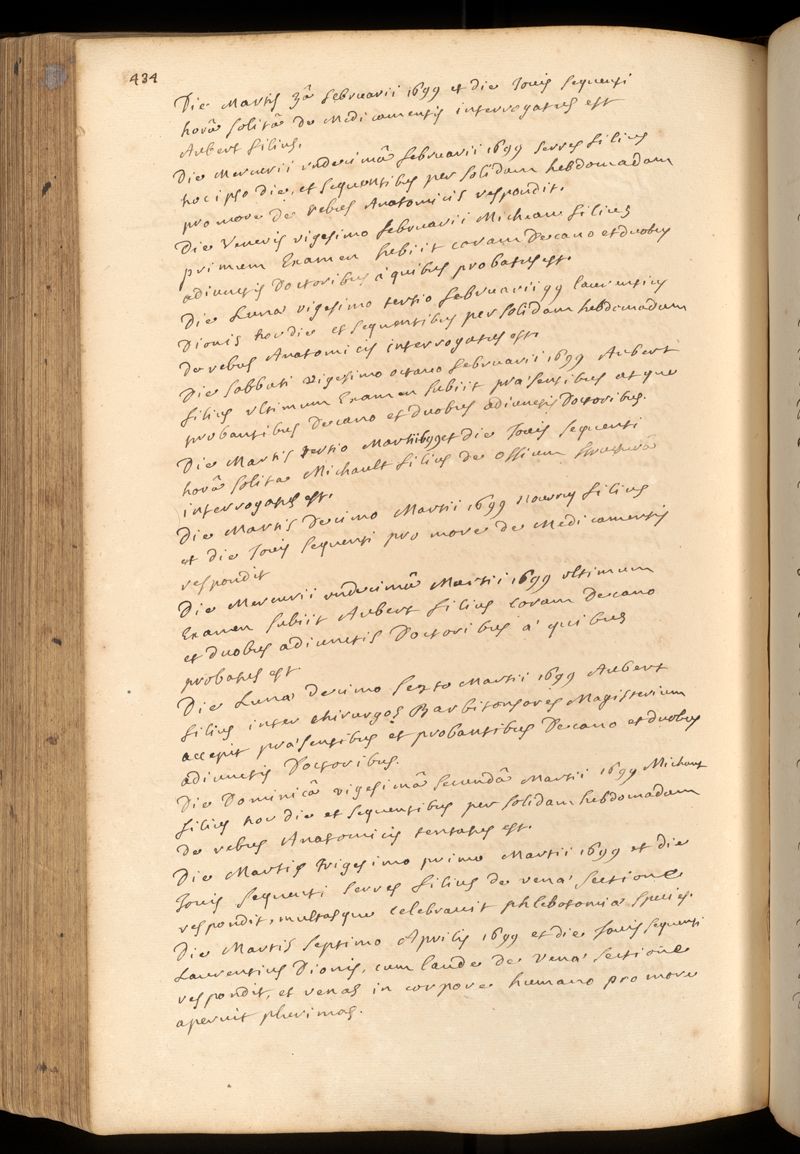 434
Die Martis 3â februarii 1699 et die Jovis sequenti
horâ solitâ de Medicamentis interrogatus est
Aubert filius.
Die Mercurii undecimâ februarii 1699 Serres filius
hoc ipso die, et sequentibus per solidam hebdomadam
pro more de rebus Anatomicis respondit.
Die Veneris vigesimo februarii Michau filius
primum Examen subiit coram Decano et duobus
adiunctis Doctoribus a quibus probatus est.
Die Lunæ vigesimo tertio februarii 99 laurentius
Dionis hoc die et sequentibus per solidam hebdomadam
de rebus Anatomicis interrogatus est.
Die Sabbati vigesimo octavo februarii 1699 Aubert
filius ultimum Examen subiit præsentibus atque
probantibus Decano et duobus adiunctis Doctoribus.
Die Martis tertio Martii 1699 et die Jovis sequenti
horâ solita Michault filius de ossium structurâ
interrogatus est.
Die Martis Decimo Martii 1699 filius
et die Jovis sequenti pro more de Medicamentis
respondit
Die Mercurii undecimâ Martii 1699 ultimum
Examen subiit Aubert filius coram Decano
et duobus adiunctis Doctoribus a' quibus
probatus est.
Die Lunæ Decimo sexto Martii 1699 Aubert
filius inter chirurgos Barbitonsores Magisterium
accepit præsentibus et probantibus Decano et duobus
adiunctis Doctoribus.
Die Dominicâ vigesimâ secundâ Martii 1699 Michaut
filius hoc die et sequentibus per solidam hebdomadam
de rebus Anatomicis tentatus est.
Die Martis trigesimo primo Martii 1699 et die
Jovis sequenti Serres filius de venæ sectione
respondit, multasque celebravit phlebotomiæ species.
Die Martis septimo Aprilis 1699 et die Jovis sequenti
Laurentius Dionis, cum laude de venæ sectione
respondit, et venas in corpore humano pro more
aperuit plurimas.